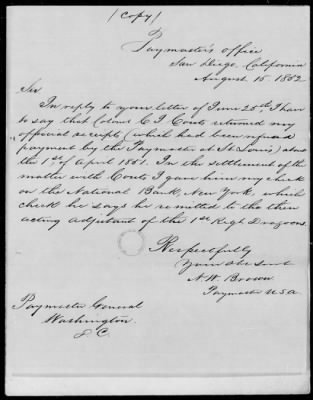 (Copy)
Paymaster's Office
San Diego, California
August 15, 1862.
Sir
In reply to your letter of June 25th I have
to say that Colonel C J Couts returned my
official receipts (which had been refused
payment by the Paymaster at St Louis) about
the 1st of April 1861. In the settlement of the
matter with Couts I gave him my check
on the National Bank, New York, which
check he says he remitted to the then
acting adjutant of the 1st Regt Dragoons.
Respectfully
Your Obt Servt
A. W. Brown
Paymaster U.S.A.
Paymaster General
Washington
D. C.